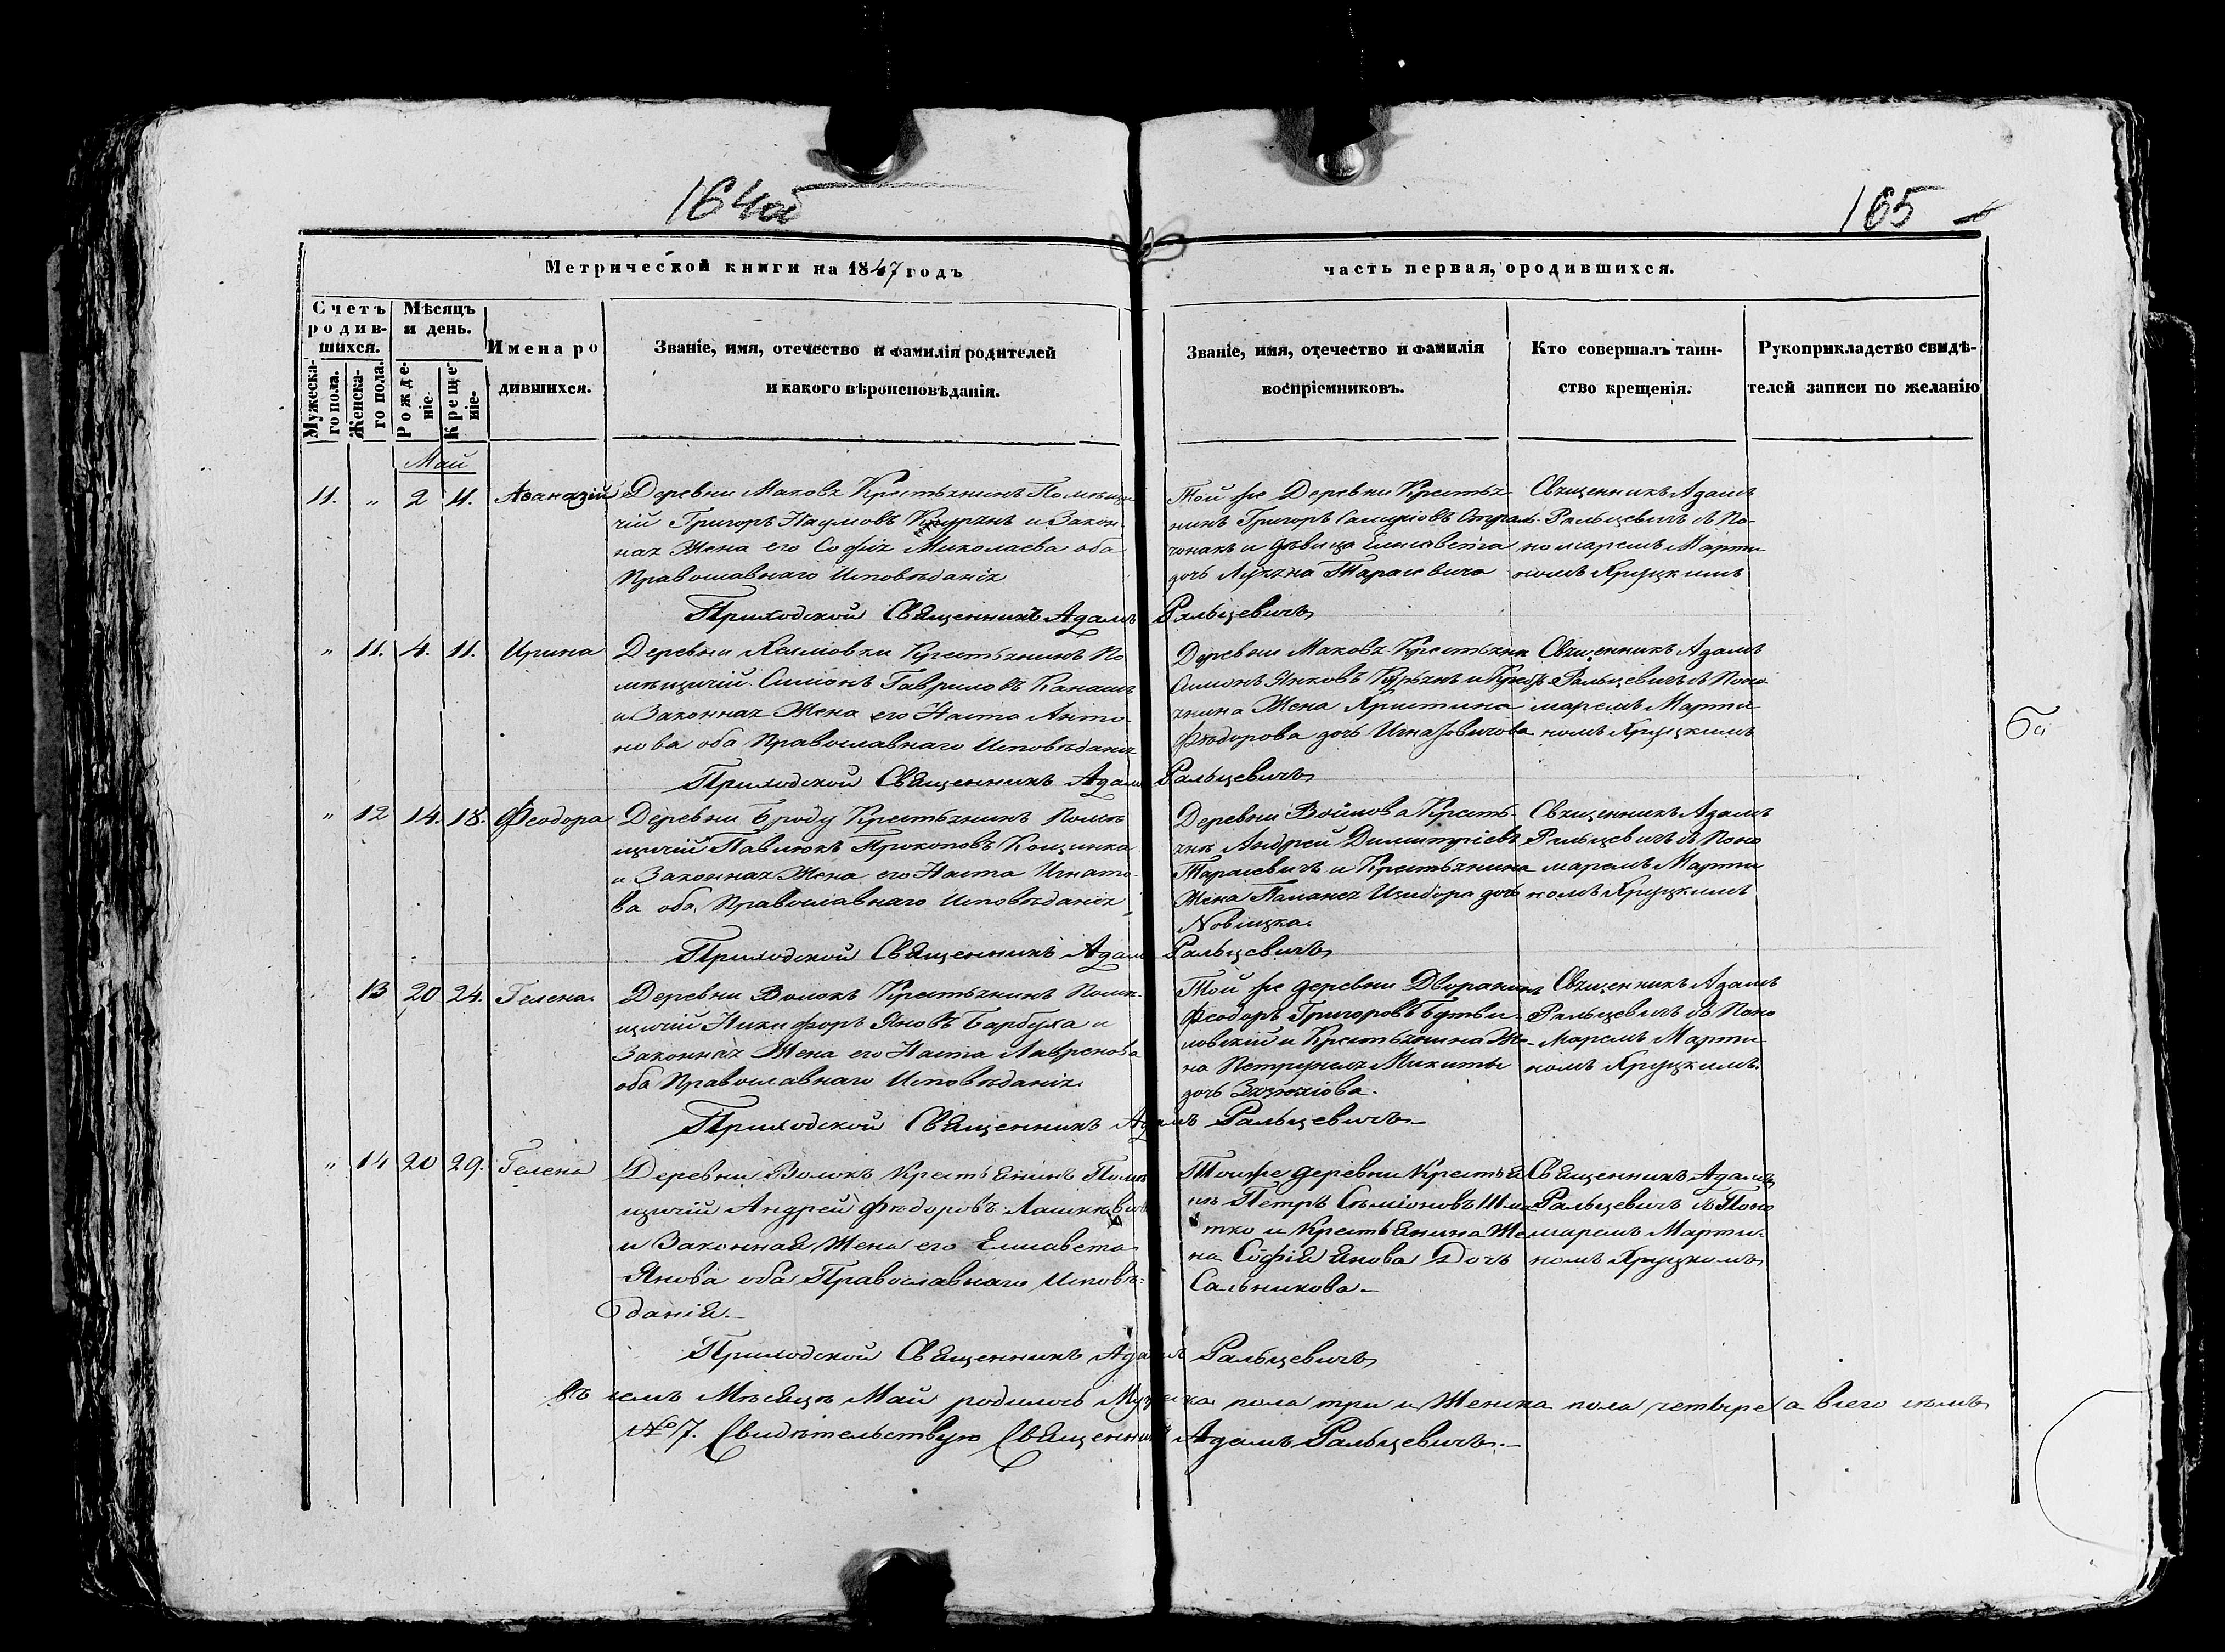 164об
165
Метрической книги на 1847 годъ
часть первая, ородившихся.
Счетъ родив-шихся.
Мужеска-го пола.
Женска-го пола.
Мѣсяцъ и день.
Рожде-ніе
Креще-ніе-
Имена ро
дившихся.
Званіе, имя, отечество и фамилія родителей
и какого вѣроисповѣданія.
Званіе, имя, отечество и фамилія
воспріемниковъ.
Кто совершалъ таин-
ство крещенія.
Рукоприкладство свидѣ-
телей записи по желанію
Май
11. " 2 11. Аѳаназій
Деревни Маковъ Крестьянинъ Помѣщи
чій Григоръ Наумовъ и Закон
ная Жена его Софія Миколаева оба
Православнаго Исповѣданія
Той же Деревни Крестья
нинъ Григоръ
и дѣвица Елисавета
дочь Тарасевича
Священникъ Адамъ
Ральцевичъ съ По-
номаремъ Марти
номъ Круцкимъ
Приходской Священникъ Адамъ Ральцевичъ
" 11. 4. 11. Ирина
Деревни Крестьянинъ По
мѣщичій Симонъ Гавриловъ Канашъ
и Законная Жена его Наста Анто-
нова оба Православнаго Исповѣданія
Деревни Маковъ Крестьянин
Симонъ Янковъ
янина Жена Христина
Ѳѣодорова дочь Игнатовичова
Священникъ Адамъ
Ральцевичъ съ Поно-
маремъ Марти-
номъ Круцкимъ
Приходской Священникъ Адамъ Ральцевичъ
" 12 14. 18. Феодора
Деревни Броду Крестьянинъ Помѣ
щичій Павлюкъ Прокоповъ Кощинка
и Законная Жена его Наста Игнато-
ва оба Православнаго Исповѣданія
Деревни Войнова Кресть-
янъ Андрей Димитріевъ
Тарасевичъ и Крестьянина
Жена Паланея Изидора дочь
Новицка.
Священникъ Адамъ
Ральцевичъ съ Поно
маремъ Марти
номъ Круцкимъ
Приходской Священникъ Адамъ Ральцевичъ
13 20 24. Гелена.
Деревни Волокъ Крестьянинъ Помѣ-
щичій Никифоръ Яновъ Барбуха и
Законная Жена его Наста Лавренова
оба Православнаго Исповѣданія.
Той же деревни Дворанинъ
Феодоръ Григоровъ
ловскій и Крестьянина Же-
на Петрунеля Микиты
дочь
Священникъ Адамъ
Ральцевичъ съ Поно
Маремъ Марти
номъ Круцкимъ.
Приходской Священникъ Адамъ Ральцевичъ
" 14 20 29. Гелена
Деревни Волокъ Крестьянинъ Помѣ
щичій Андрей Фѣдоровъ
и Законная Жена его Елисавета
Янова оба Православнаго Исповѣ-
данія.
Тойже деревни Крестья
нъ Петръ Сѣміоновъ
тко и Крестьянина Же
на Софія Янова Дочь
Сальникова.
Священникъ Адамъ
Ральцевичъ съ Поно
маремъ Марти-
номъ Круцкимъ
Приходской Священникъ Адамъ Ральцевичъ
въ семъ Мѣсяцѣ Май родилось Мужеска пола три и Женска пола четыре а всего сѣмъ
№ 7. Свидѣтельствую Священникъ Адамъ Ральцевичъ.